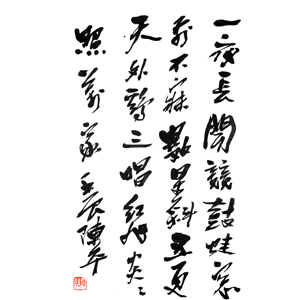 一夜長聞競鼓蛙窓
前不寐數星斜五更
天外鷄三唱紅炎々
照萬家 壬辰陳